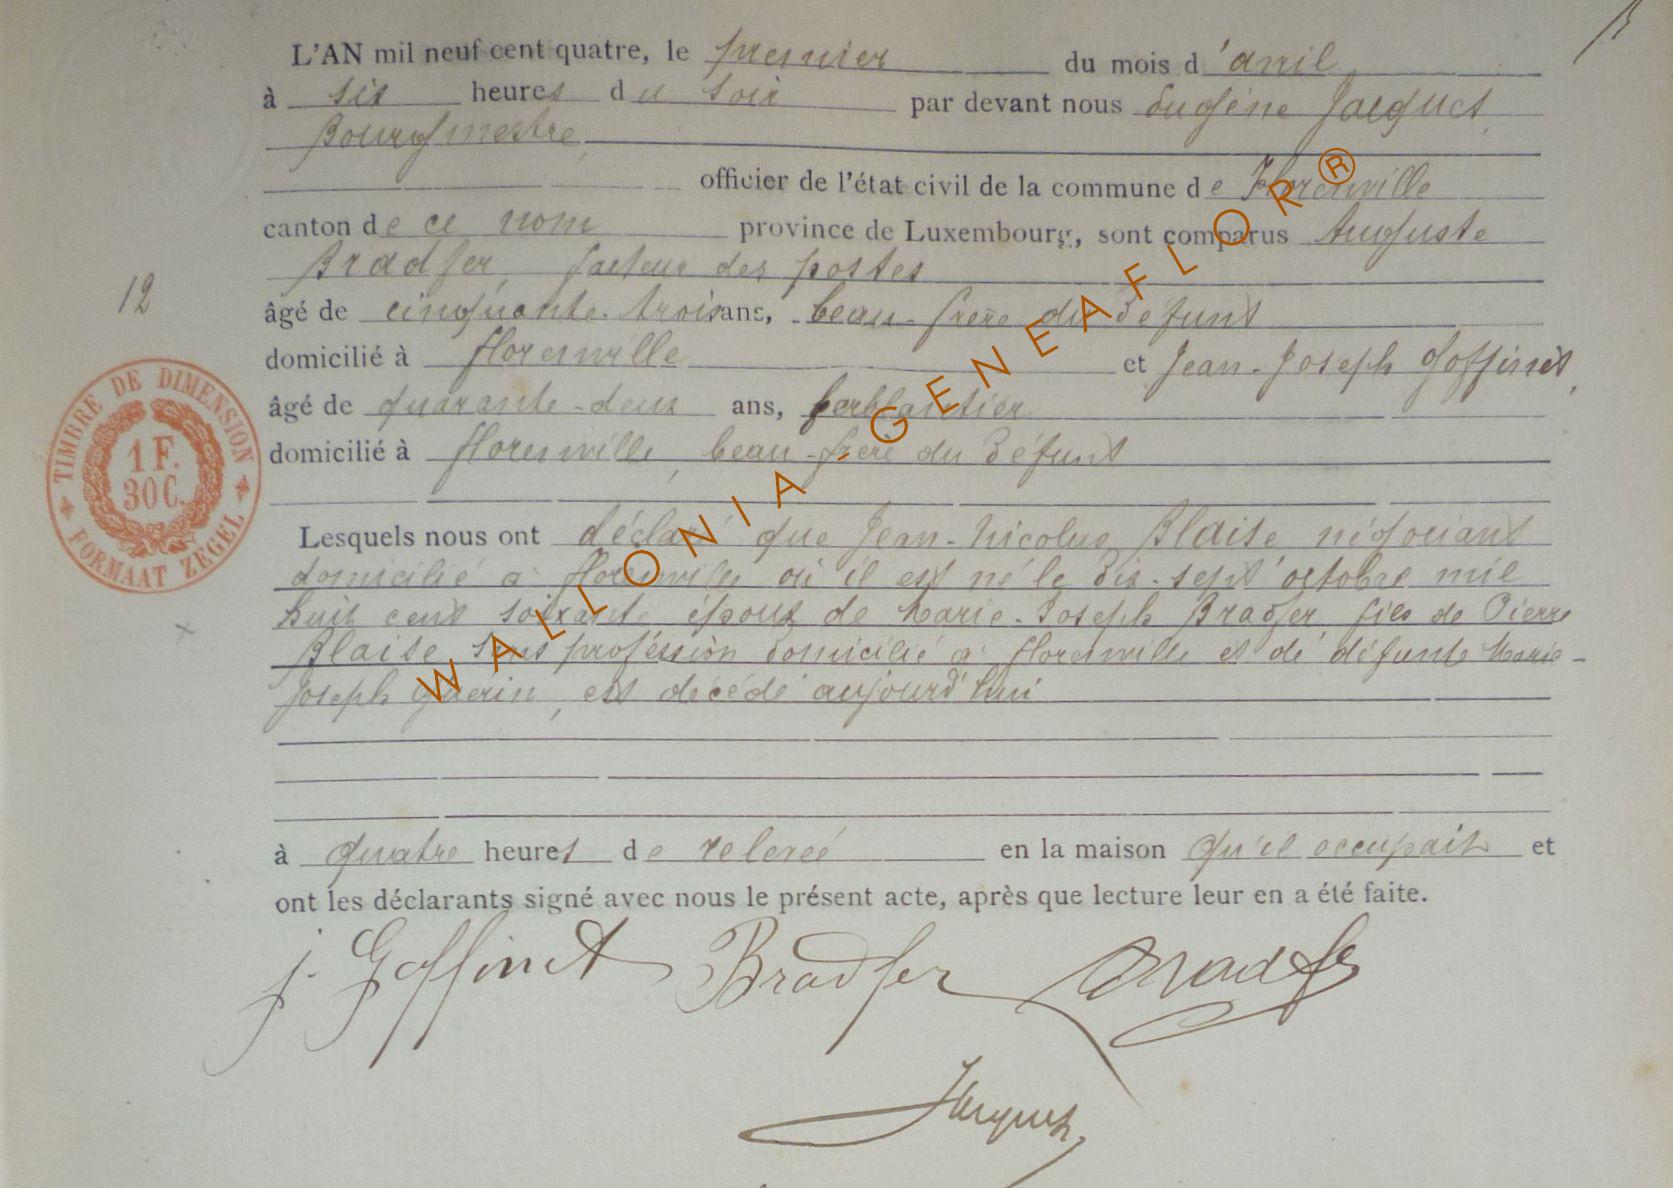 L'AN mil neuf cent quatre, le premier du mois d'avril
à six heures du soir par devant nous Eugène Jacquet,
Bourgmestre,
officier de l'état civil de la commune de Florenville
canton de ce nom province de Luxembourg, sont comparus Auguste
Bradfer, facteur des postes
12
âgé de cinquante-trois ans, beau-frère du défunt
domicilié à Florenville et Jean-Joseph Goffinet,
âgé de quarante-deux ans, ferblantier
domicilié à Florenville, beau-frère du défunt
TIMBRE DE DIMENSION
1 F.
30 C.
FORMAAT ZEGEL
Lesquels nous ont déclaré que Jean-Nicolas Blaise négociant
domicilié à Florenville où il est né le dix-sept octobre mil
huit cent soixante époux de Marie-Joseph Bradfer fils de Pierre
Blaise sans proféssion domicilié à Florenville et de défunte Marie-
Joseph Guerin, est décédé aujourd'hui
à quatre heures de relevée en la maison qu'il occupait et
ont les déclarants signé avec nous le présent acte, après que lecture leur en a été faite.
J. Goffinet Bradfer Bradfer
Jacquet
WALLONIA GENEAFLOR®